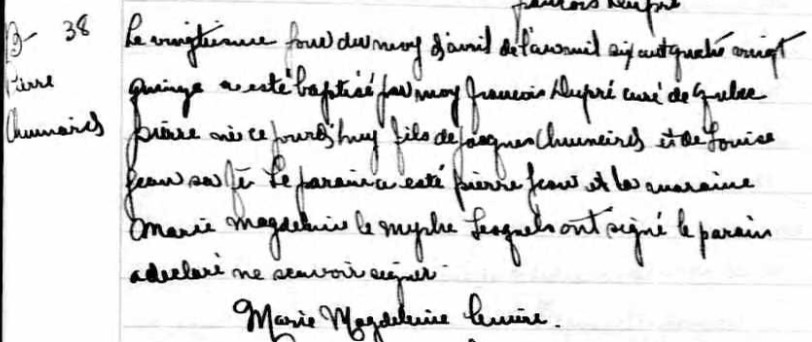 françois Dupré
B- 38
Pierre
Le vingtieme jour du moy d'avril de l'an mil six cent quatre vingt
quinze a esté baptisé par moy francois Dupré curé de Quebec
pierre né ce jourd'huy fils de jacques et de Louise
jean sa fe Le parain a esté pierre jean et la maraine
Marie Magdeleine le Lesquels ont signé le parain
a declaré ne scauvoir signer
Marie Magdeleine